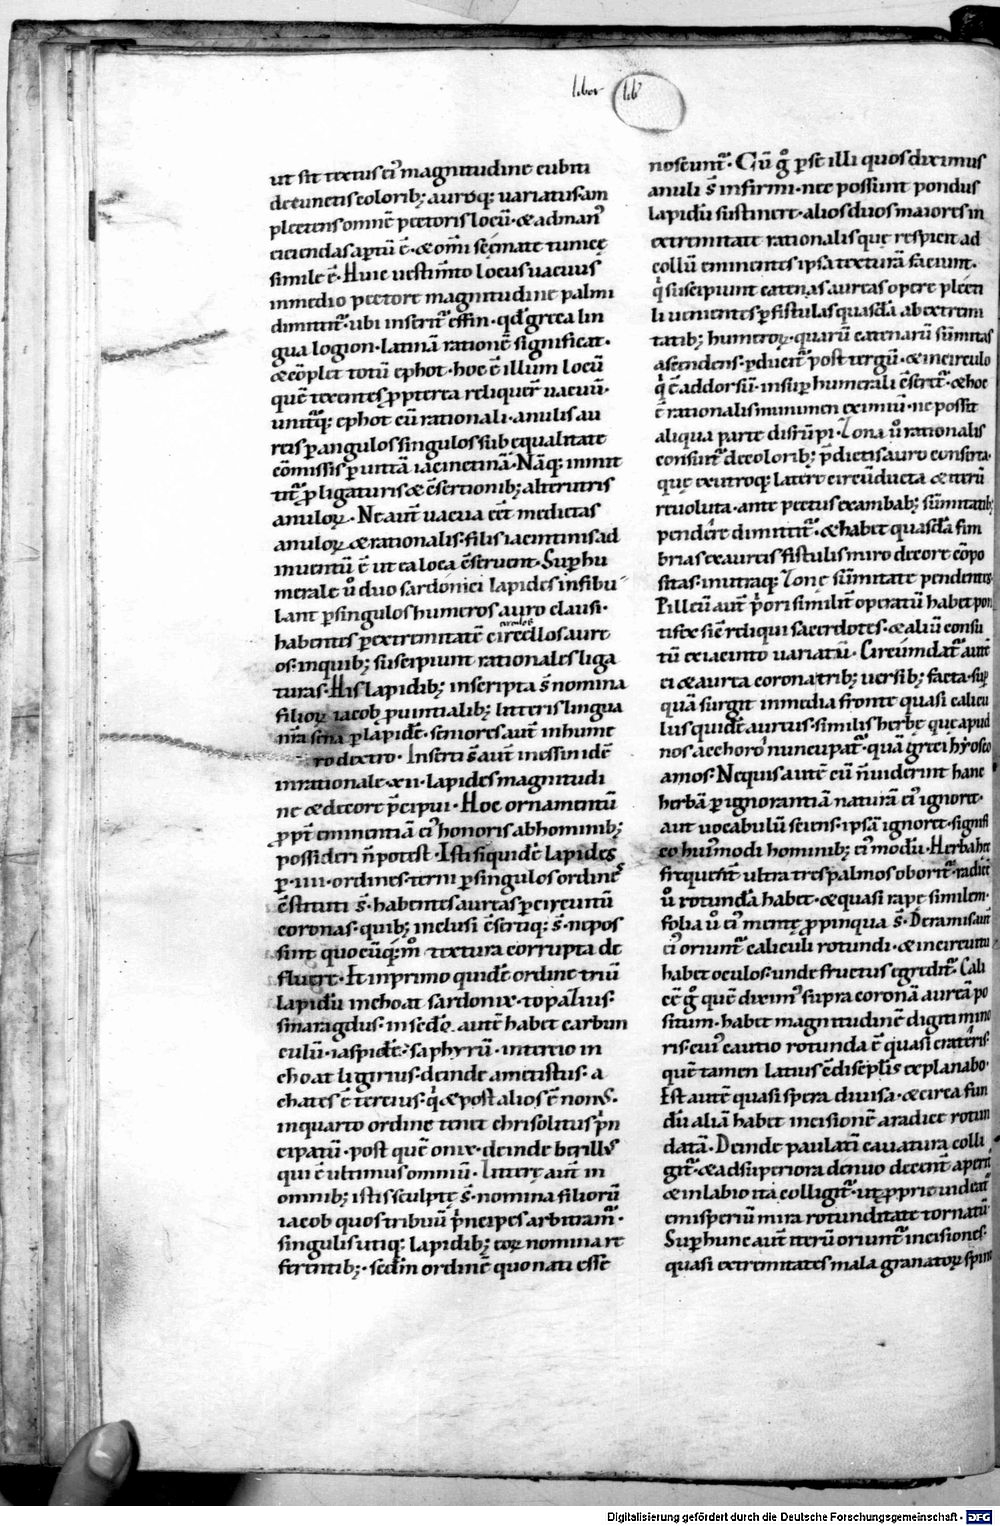 liber lib'
ut sit textus ei' magnitudine cubiti
de cunctis colorib; auroq; uariatus am
plectens omnē pectoris locū· & ad man'
eiciendas aptū ē· & om̄i scēmate tunicę
simile ē· Huic uestim̄to locus uacuus
inmedio pectore magnitudine palmi
dimittit'· ubi inserit' essin· qd' greca lin
gua logion· latinā rationē significat·
& cōplet totū ephot· hoc ē illum locū
quē texentes ppterea reliquer̄ uacuū·
unitq; ephot cū rationali· anulis au
reis p angulos singulos sub equalitate
cōmissis p uittā iacinctinā· Nāq; inmit
tit' p ligaturis & cserrtionib; alterutris
anuloꝝ· Ne aut̄ uacua eēt medietas
anuloꝝ & rationalis· filis iacintinis ad
inuentū ē ut ea loca cserent· Sup hu
merale ů duo sardonici lapides infibu
lant p singulos humeros auro clausi·
habentes p extremitatē circellos aure
circulos
os· in quib; suscipiunt rationales liga
turas· His lapidib; inscripta s̄ nomina
filioꝝ iacob puintialib; litteris lingua
nr̄a sena p lapidē· seniores aut̄ in hume
ro dextro· Inserti s̄ aut̄ in essin idē
in rationale· xii· lapides magnitudi
ne & decore p̄cipui· Hoc ornamentū
ppt' eminentiā ei' honoris ab hominib;
possideri n̄ potest· Isti siquidē lapides
p· iiii· ordines· terni p singulos ordines
c̄stituti s̄· habentes aureas p circuitū
coronas· quib; inclusi c̄serti q; s̄· ne pos
sint quocūq; m° textura corrupta de
fluere· Et in primo quidē ordine triū
lapidū inchoat sardonix· topazius·
smaragdus· in sedo autē habet carbun
culū· iaspidē· saphyrū· in tercio in
choat ligirius· deinde ametistus· a
chates ē tercius· q̇ & post alios ē nonus·
in quarto ordine tenet chrisolitus p̄n
cipatū· post quē onix· deinde berillus
qui ē ultimus omniū· Litterę aut̄ in
omnib; istis sculptę s̄· nomina filiorū
iacob quos tribuū p̄ncipes arbitram'·
singulis utiq; lapidib; eoꝝ nomina re
ferentib;· sedm ordinē quo nati esse
noscunt'· Cū g° p se illi quos diximus
anuli s̄ infirmi· nec possunt pondus
lapidū sustinere· alios duos maiores in
extremitate rationalis que respicit ad
collū eminentes ipsa texturā faciunt·
q̇ suscipiunt catenas aureas opere plecti
li uenientes p fistulas quasdā ab extremi
tatib; humeroꝝ· quarū catenarū sūmitas
ascendens· pducit' post tergū· & in circulo
q̇ ē ad dorsū· in sup humerali c̄serit'· & hoc
ē rationalis munimen eximiū· ne possit
aliqua parte disrūpi· Zona ů rationalis
consuit' de colorib; p̄dictis auro conserta·
quę ex utroq; latere circūducta & iterū
reuoluta· ante pectus ex ambab; sūmitatib;
pendere dimittit'· & habet quasdā fim
brias ex aureis fistulis miro decore cōpo
sitas· in utraq; Zonę sūmitate pendentes
Pilleū aut̄ p̄ori similit' operatū habet pon
tifex sic̄ reliqui sacerdotes· & aliū consu
tū ex iacinto uariatū· Circūmdat' aut̄
ei & aurea corona trib; uersib; facta· sup
quā surgit in media fronte quasi calicu
lus quidē aureus· similis herbę quę apud
nos acchoro nuncupat'· quā greci hyosco
amos· Nequis autē eū n̄ uiderint hanc
herbā p ignorantiā naturā ei' ignoret·
aut uocabulū sciens· ipsā ignoret· signifi
co hui'modi hominib; ei' modū· Herba hec
frequent' ultra tres palmos oborit'· radicē
ů rotundā habet· & quasi rape similem·
folia ů ei' mentę ppinqua s̄· De ramis aut̄
ei' oriunt' caliculi rotundi· & in circuitu
habet oculos· unde fructus egredit'· Cali
cē g° quē dixim' supra coronā aureā po
situm· habet magnitudinē digiti mino
ris· cui' cautio rotunda ē quasi crateris·
quē tamen latius & disseplis explanabo·
Est autē quasi spera diuisa· & circa fun
dū aliā habet incisionē a radice rotun
datā· Deinde paulatī cauatura colli
git'· & ad supertiora denuo decent' aperit'
& in labio ita colligit'· ut ppprie uideat'
emisperiū mira rotunditate tornatū·
Sup hunc aut̄ iterū oriunt' incisiones·
quasi extremitates mala granatoꝝ spine
Digitalisierung gefördert durch die Deutsche Forschungsgemeinschaft - DFG